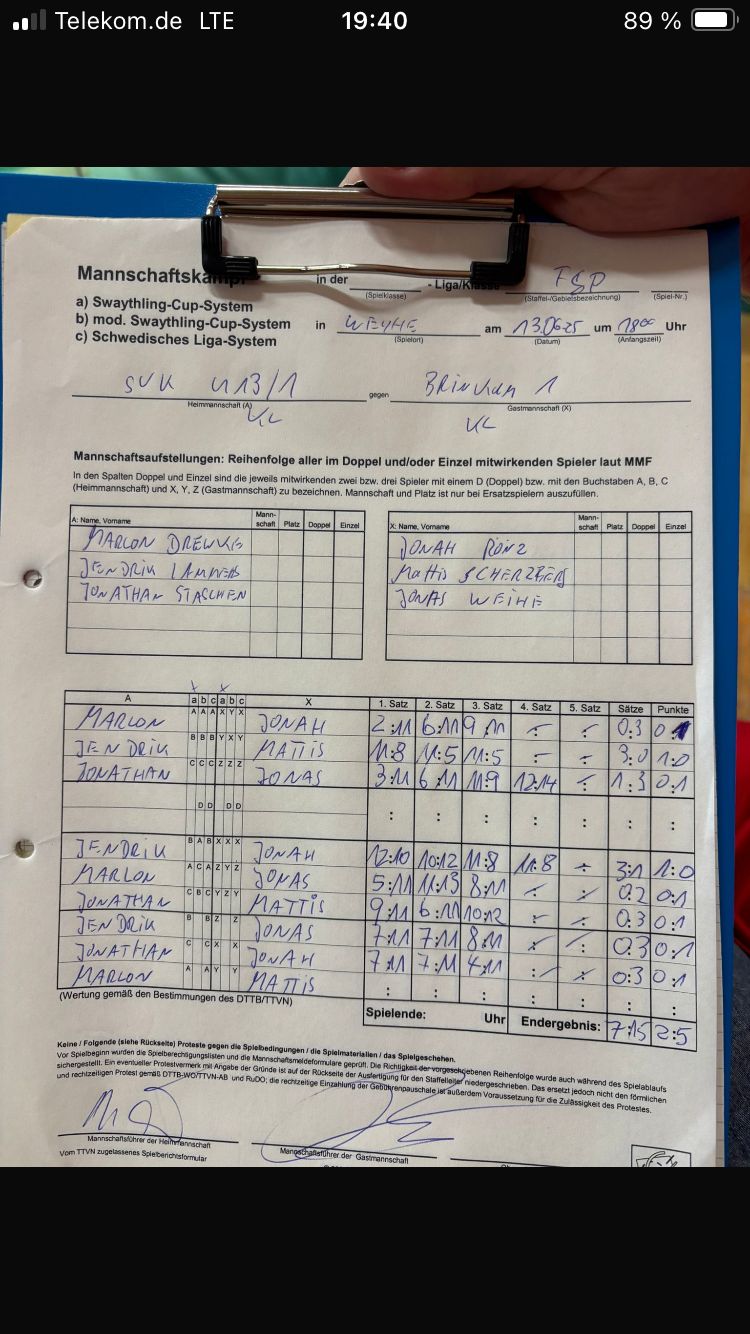 Telekom.de LTE 19:40 89 %
Mannschaftskampf in der - Liga/Klasse FSP
(Spielklasse) (Staffel-/Gebietsbezeichnung) (Spiel-Nr.)
a) Swaythling-Cup-System
b) mod. Swaythling-Cup-System in WEYHE am 13.06.25 um 18 00 Uhr
c) Schwedisches Liga-System (Spielort) (Datum) (Anfangszeit)
SVK U13/1 gegen BRINKUM 1
Heimmannschaft (A) Gastmannschaft (X)
KL KL
Mannschaftsaufstellungen: Reihenfolge aller im Doppel und/oder Einzel mitwirkenden Spieler laut MMF
In den Spalten Doppel und Einzel sind die jeweils mitwirkenden zwei bzw. drei Spieler mit einem D (Doppel) bzw. mit den Buchstaben A, B, C
(Heimmannschaft) und X, Y, Z (Gastmannschaft) zu bezeichnen. Mannschaft und Platz ist nur bei Ersatzspielern auszufüllen.
A: Name, Vorname Mann-schaft Platz Doppel Einzel X: Name, Vorname Mann-schaft Platz Doppel Einzel
MARLON DREWKS JONAH RÖNZ
JENDRIK LAMMERS MATTIS SCHERZBERG
JONATHAN STASCHEN JONAS WEIHE
x x
A a b c a b c X 1. Satz 2. Satz 3. Satz 4. Satz 5. Satz Sätze Punkte
MARLON A A A X Y X JONAH 2:11 6:11 9:11 : : 0:3 0:1
JENDRIK B B B Y X Y MATTIS 11:8 11:5 11:5 : : 3:0 1:0
JONATHAN C C C Z Z Z JONAS 3:11 6:11 11:9 12:14 : 1:3 0:1
D D D D : : : : : : :
JENDRIK B A B X X X JONAH 12:10 10:12 11:8 11:8 : 3:1 1:0
MARLON A C A Z Y Z JONAS 5:11 11:13 8:11 : : 0:2 0:1
JONATHAN C B C Y Z Y MATTIS 9:11 6:11 10:12 : : 0:3 0:1
JENDRIK B B Z Z JONAS 7:11 7:11 8:11 : : 0:3 0:1
JONATHAN C C X X JONAH 7:11 7:11 4:11 : : 0:3 0:1
MARLON A A Y Y MATTIS : : : : : : :
(Wertung gemäß den Bestimmungen des DTTB/TTVN) Spielende: Uhr Endergebnis: 7:15 2:5
Keine / Folgende (siehe Rückseite) Proteste gegen die Spielbedingungen / die Spielmaterialien / das Spielgeschehen.
Vor Spielbeginn wurden die Spielberechtigungslisten und die Mannschaftsmeldeformulare geprüft. Die Richtigkeit der vorgeschriebenen Reihenfolge wurde auch während des Spielablaufs
sichergestellt. Ein eventueller Protestvermerk mit Angabe der Gründe ist auf der Rückseite der Ausfertigung für den Staffelleiter niedergeschrieben. Das ersetzt jedoch nicht den förmlichen
und rechtzeitigen Protest gemäß DTTB-WO/TTVN-AB und RuDO; die rechtzeitige Einzahlung der Gebührenpauschale ist außerdem Voraussetzung für die Zulässigkeit des Protestes.
Mannschaftsführer der Heimmannschaft Mannschaftsführer der Gastmannschaft
Vom TTVN zugelassenes Spielberichtsformular